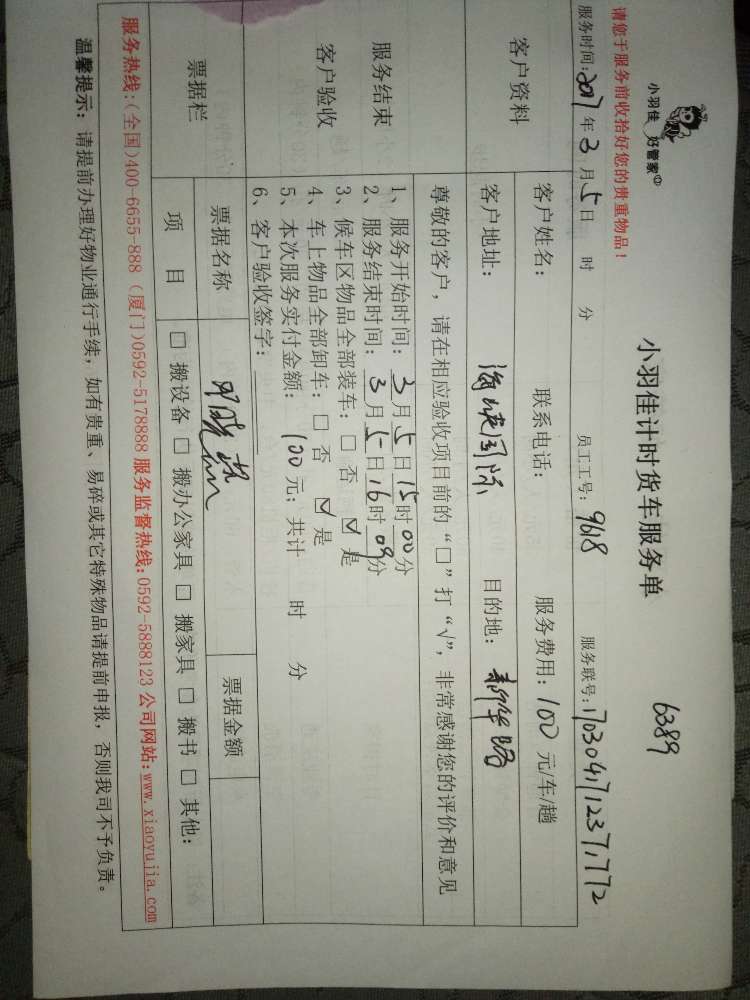 小羽佳 好管家
小羽佳计时货车服务单
6389
请您于服务前收拾好您的贵重物品！
服务时间:2017年3月5日 时 分 员工工号: 9618 服务联号:
客户资料
客户姓名: 联系电话: 服务费用: 100 元/车/趟
客户地址: 海峡国际 目的地: 新华路
服务结束
客户验收
尊敬的客户，请在相应验收项目前的“□”打“√”，非常感谢您的评价和意见
1、服务开始时间: 3月5日15时00分
2、服务结束时间: 3月5日16时09分
3、候车区物品全部装车: □ 否 ☑ 是
4、车上物品全部卸车: □ 否 ☑ 是
5、本次服务实付金额: 100元; 共计 时 分
6、客户验收签字:
票据栏
票据名称 票据金额
项 目 □ 搬设备 □ 搬办公家具 □ 搬家具 □ 搬书 □ 其他:
服务热线:(全国)400-6655-888 (厦门)0592-5178888 服务监督热线:0592-5888123 公司网站:www.xiaoyujia.com
温馨提示: 请提前办理好物业通行手续，如有贵重、易碎或其它特殊物品请提前申报，否则我司不予负责。